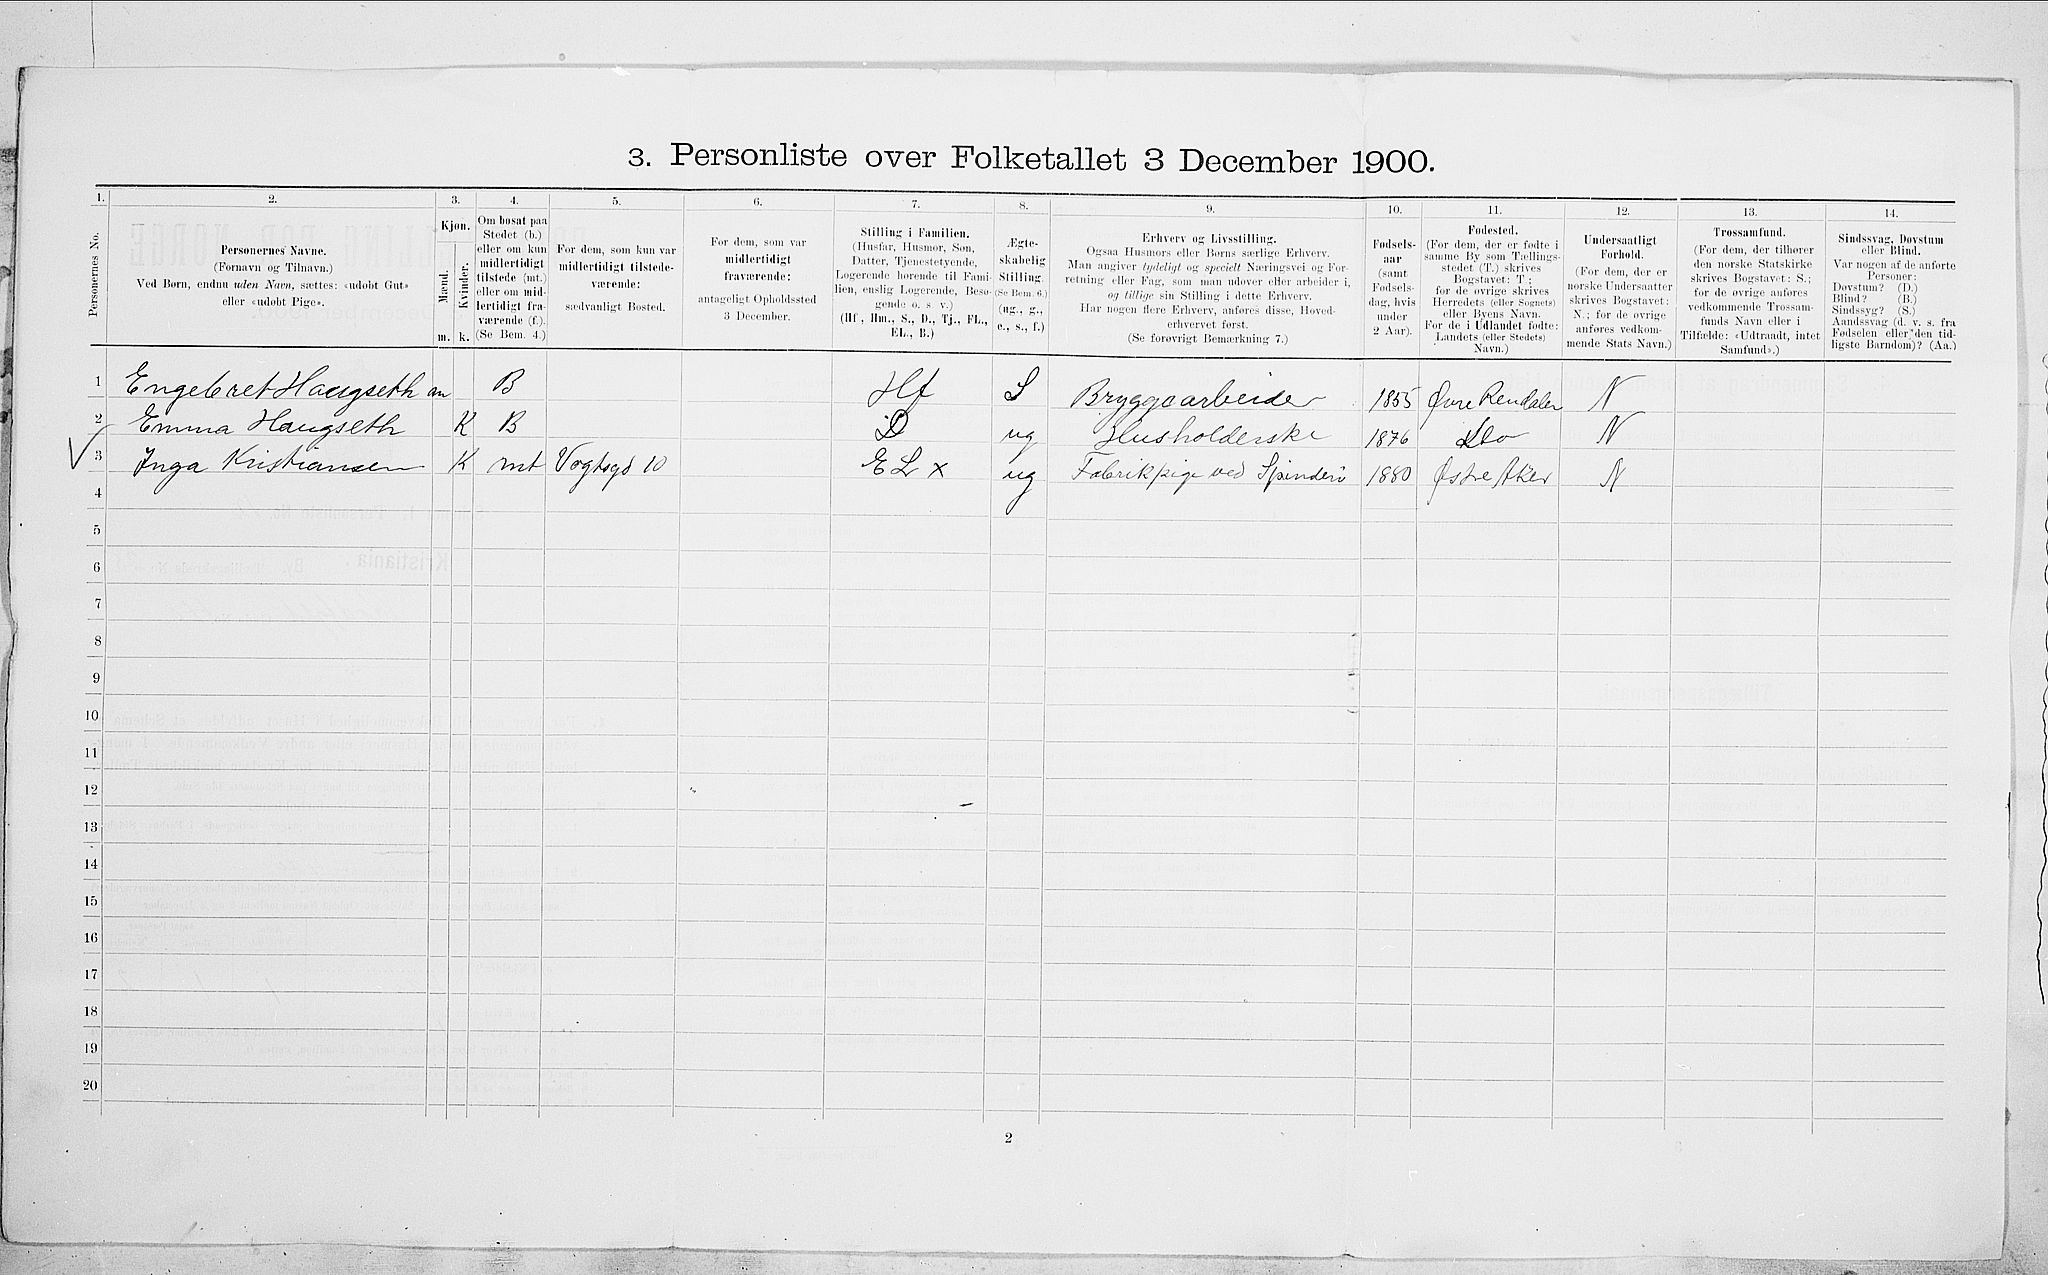 3. Personliste over Folketallet 3 December 1900.
1. 2. 3. 4. 5. 6. 7. 8. 9. 10. 11. 12. 13. 14.
Personernes No.
Personernes Navne.
(Fornavn og Tilnavn.)
Ved Børn, endnu uden Navn, sættes: «udøbt Gut»
eller «udøbt Pige».
Kjøn.
Mænd.
Kvinder.
m. k.
Om bosat paa
Stedet (b.)
eller om kun
midlertidigt
tilstede (mt.)
eller om mid-
lertidigt fra-
værende (f.).
(Se Bem. 4.)
For dem, som kun var
midlertidigt tilstede-
værende:
sædvanligt Bosted.
For dem, som var
midlertidigt
fraværende:
antageligt Opholdssted
3 December.
Stilling i Familien.
(Husfar, Husmor, Søn,
Datter, Tjenestetyende,
Logerende hørende til Fami-
lien, enslig Logerende, Besø-
gende o. s. v.)
(Hf., Hm., S., D., Tj., FL.,
EL., B.)
Ægte-
skabelig
Stilling.
(Se Bem. 6.)
(ug., g.,
e., s., f.)
Erhverv og Livsstilling.
Ogsaa Husmors eller Børns særlige Erhverv.
Man angiver tydeligt og specielt Næringsvei og For-
retning eller Fag, som man udøver eller arbeider i,
og tillige sin Stilling i dette Erhverv.
Har nogen flere Erhverv, anføres disse, Hoved-
erhvervet først.
(Se forøvrigt Bemærkning 7.)
Fødsels-
aar
(samt
Fødsels-
dag, hvis
under
2 Aar).
Fødested.
(For dem, der er fødte i
samme By som Tællings-
stedet (T.) skrives
Bogstavet: T.;
for de øvrige skrives
Herredets (eller Sognets)
eller Byens Navn.
For de i Udlandet fødte:
Landets (eller Stedets)
Navn.)
Undersaatligt
Forhold.
(For dem, der er
norske Undersaatter
skrives Bogstavet:
N.; for de øvrige
anføres vedkom-
mende Stats Navn.)
Trossamfund.
(For dem, der tilhører
den norske Statskirke
skrives Bogstavet: S.;
for de øvrige anføres
vedkommende Trossam-
funds Navn eller i
Tilfælde: «Udtraadt, intet
Samfund».)
Sindssvag, Døvstum
eller Blind.
Var nogen af de anførte
Personer:
Døvstum? (D.)
Blind? (B.)
Sindssyg? (S.)
Aandssvag (d. v. s. fra
Fødselen eller den tid-
ligste Barndom)? (Aa.)
1 Engebret Haugseth m B Hf S Bryggearbeider 1855 Øvre Rendalen N
2 Emma Haugseth K B D ug Husholderske 1876 Do N
3 Inga Kristiansen K mt Vogtsgd 10 EL x ug Fabrikpige ved Spinderi 1880 Østre Aker N
4
5
6
7
8
9
10
11
12
13
14
15
16
17
18
19
20
2